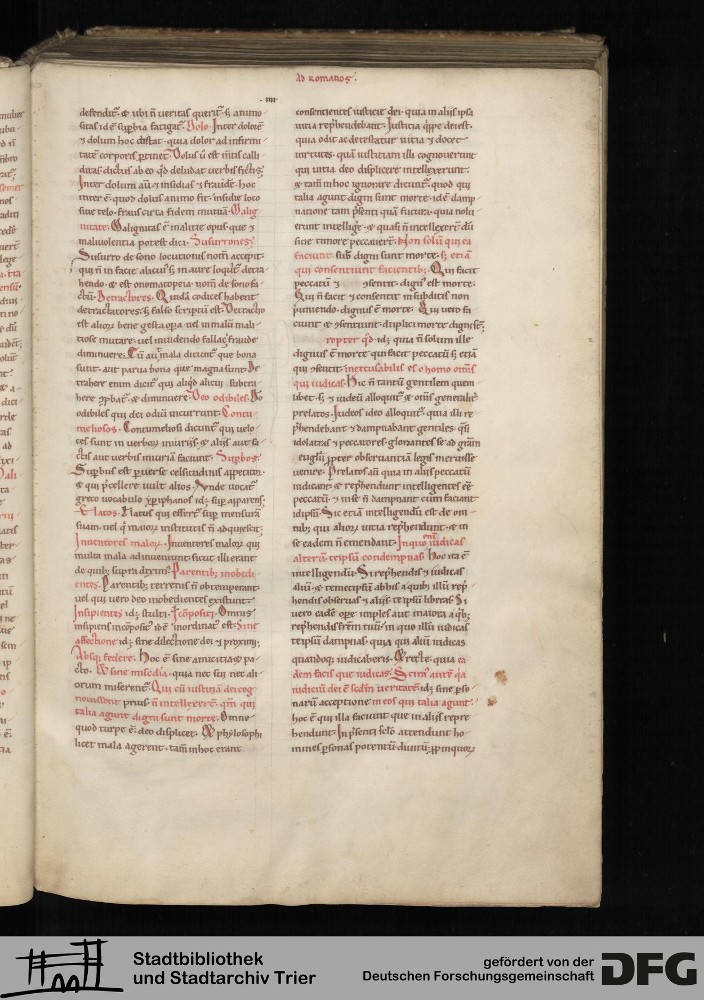 AD ROMANOS.
.IIII.
defendit᷑. & ubi ñ veritas querit᷑. s; animo
sitas id ẽ supbia fatigat᷑. Dolo. Inter dolorẽ
⁊ dolum hoc distat. quia dolor ad infirmi
tatẽ corporis ptinet. Dolus ũ est mtis calli
ditas. dictus ab eo qđ deludat verbis fictis;
Inter dolum aũ ⁊ insidias ⁊ fraudẽ. hoc
inter ẽ. quod dolus animo fit. insidie loco
siue telo. fraus circa fidem mutuã. Malig
nitate. Malignitas ẽ malitie opus. que ⁊
maliuolentia potest dici. Susurrones.
Susurro de sono locutionis nom̃ accepit.
qui ñ in facie alicui᷒. s; in aure loquit᷑ detra
hendo. & est onomatopeia. nom̃ de sono fa
ctũ. Detractores. Quidã codices habent
detractatores. s; falso scriptũ est. Detractio
est alior̃ bene gesta opa. vel in malũ mali
tiose mutare. vel inuidendo fallaci fraude
diminuere. Cũ aũ mala dicunt᷑ que bona
sunt. aut parua bona que magna sunt. De
trahere enim dicit᷑ qui aliqđ alicui subtra
here ꝓbat᷑. & diminuere. Deo odibiles. Do
odibiles qui dei odiũ incurrunt. Contu
meliosos. Contumeliosi dicunt᷑ qui velo
ces sunt in verbor̃ iniuriis. & aliis aut fa
ctis aut verbis iniuriã faciunt. Supbos.
Supbus est puerse celsitudinis appetitor.
& qui pcellere vult alios. Vnde vocat᷑
greco uocabulo yperiphanos. id; sup apparens;
Elatos. Elatus qui effert᷑ sup mensurã
suam. vel qͥ maior̃ institutis ñ adquiescit;
Inuentores malor̃. Inuentores malor̃ qui
multa mala adinueniunt. sicut illi erant
de quib; supra dixim᷒. Parentib; inobedi
entes. Parentib; terrenis ñ obtemperant.
vel qui uero deo inobedientes existunt.
Insipientes id; stulti. Incõpositi. Omnis
insipiens incõposit᷒ id ẽ inordinat᷒ est. Sine
affectione id; sine dilectione dei ⁊ proximi;
Absq; federe. Hoc ẽ sine amicitiar̃ pa
cto. & sine miscdia. quia nec sui nec ali
orum miserent᷑. Qui cũ iustitiã dei cog
nouissent prius ñ intellexerẽ. qm̃ qui
talia agunt digni sunt morte. Omne
quod turpe ẽ. deo displicet. & phylosophi
licet mala agerent. tam̃ in hoc erant
consentientes iusticie dei. quia in aliis ipsi
uitia rephendebant. Iustitia q̈ppe dei est.
quia odit ac detestatur uitia ⁊ docet
uirtutes. quã iustitiam illi cognouerunt
qui uitia deo displicere intellexerunt.
& tam̃ in hoc ignorare dicunt᷑. quod qui
talia agunt digni sunt morte. id ẽ damp
natione tam psenti quã futura. quia nolu
erunt intellige. & quasi ñ intellexerĩ dũ
sine timore peccauert. Non solũ qui ea
faciunt. sub̃ digni sunt morte. s; etiã
qui consentiunt facientib;. Qui facit
peccatũ ⁊ ꝯsentit. digni᷒ est morte.
Qui ñ facit ⁊ consentit in subditis non
puniendo. dignus ẽ morte. Qui uero fa
ciunt & ꝯsentiunt. duplici morte digni st;
repter qđ. id; quia ñ solum ille
dignus ẽ morte qui facit peccatũ s; etiã
qui ꝯsentit. inexcusabilis es o homo om̃is
qui iudicas. Hic ñ tantũ gentilem quem
libet. s; ⁊ iudeũ alloquit᷑ & om̃s generalit᷑
prelatos. Iudeos ideo alloquit᷑. quia illi re
phendebant ⁊ dampnabant gentiles. qͣsi
idolatras ⁊ peccatores. gloriantes se ad gratiam
euglii pter obseruantiã legis meruisse
uenire. Prelatos aũ quia in aliis peccatũ
iudicant & rephendunt. intelligentes eẽ
peccatũ. ⁊ mise ñ dampnant cum faciant
idipsũ. Sic etiã intelligendũ est de om
nib; qui alior̃ uitia rephendunt. & in
se eadem ñ emendant. In quo eni᷒ iudicas
alterũ teipsũ condempnas. Hoc ita ẽ
intelligendũ. Si rephendis ⁊ iudicas
aliũ. & temetipsũ ab his a quib; illũ rep
hendis obseruas. ⁊ aliis te ipsũ liberas. Si
uero eadẽ ope imples aut maiora a qͥb;
rephendis frẽm tuũ. in quo illũ iudicas
teipsũ dampnas. quia qui aliũ iudicas
quandoq; iudicaberis. & recte. quia ea
dem facis que iudicas. Scim᷒ aũtẽ qͣ
iudiciũ dei ẽ scđm ueritatẽ. id; sine pso
narũ acceptione. in eos qui talia agunt.
hoc ẽ qui illa faciunt que in aliis repre
hendunt. In psenti sclo attendunt ho
mines psonas potentũ. diuitũ. ꝓpinquor̃
Stadtbibliothek
und Stadtarchiv Trier
gefördert von der
Deutschen Forschungsgemeinschaft
DFG